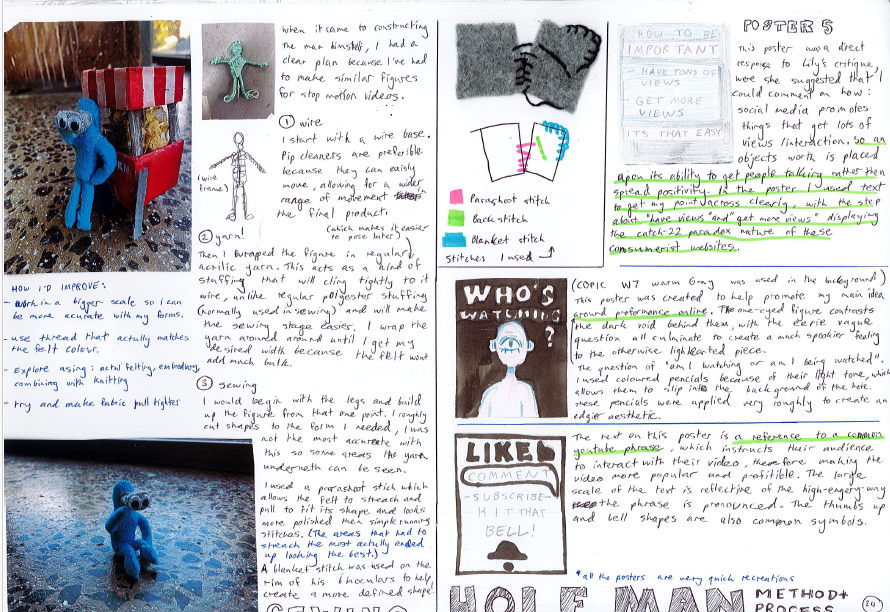 when it came to constructing
the man himself, I had a
clear plan because I've had
to make similar figures
for stop motion videos.
① wire
I start with a wire base.
Pip cleaners are preferible
because they can easily
move, allowing for a wider
range of movement in
the final product.
(wire
frame)
(which makes it easier
to pose later)
② yarn!
Then I wrapped the figure in regular
acrilic yarn. This acts as a kind of
stuffing that will cling tightly to it
wire, unlike regular polyester stuffing
(normally used in sewing) and will make
the sewing stage easier. I wrap the
yarn around around until I get my
desired width because the felt wont
add much bulk.
③ sewing
I would begin with the legs and build
up the figure from that one point. I roughly
cut shapes to the form I needed, I was
not the most accurate with
this so some areas the yarn
underneth can be seen.
I used a parashoot stich which
allows the felt to streach and
pull to fit its shape and looks
more polished then simple running
stitches. (The areas that had to
streach the most actully ended
up looking the best.)
A blanket stitch was used on the
rim of his binoculars to help
create a more defined shape.
HOW I'D IMPROVE:
- work in a bigger scale so I can
be more acurate with my forms.
- use thread that actully matches
the felt colour.
- Explore using: actul felting, embroidery,
combining with knitting
- try and make fabric pull tighter
Parashoot stitch
Back stitch
Blanket stitch
stitches I used
HOW TO BE
IMPORTANT
- HAVE TONS OF
VIEWS
- GET MORE
VIEWS
ITS THAT EASY
POSTERS
This poster was a direct
response to Lily's critique,
were she suggested that I
could comment on how:
social media promotes
things that get lots of
views/interaction. So an
objects worth is placed
upon its ability to get people talking rather then
spread positivity. In the poster I used text
to get my point across clearly, with the step
about "have views" and "get more views" displaying
the catch-22 paradox nature of these
consumerist websites.
WHO'S
WATCHING
?
(COPIC W7 warm Gray was used in the background)
This poster was created to help promote my main idea
around preformance online. The one-eyed figure contrasts
the dark void behind them, with the eerie vague
question all culminate to create a much spookier feeling
to the otherwise lighthearted piece.
The question of "am I watching or am I being watched".
I used coloured pencials because of their light tone, which
allows them to slip into the background of the hole.
These pencials were applied very roughly to create an
edgier aesthetic.
LIKE
COMMENT
- SUBSCRIBE -
HIT THAT
BELL!
The text on this poster is a reference to a common
youtube phrase, which instructs their audience
to interact with their video, therefore making the
video more popular and profitible. The large
scale of the text is reflective of the high-energy way
the phrase is pronounced. The thumbs up
and bell shapes are also common symbols.
* all the posters are very quick recreations
HOLE MAN
METHOD +
PROCESS